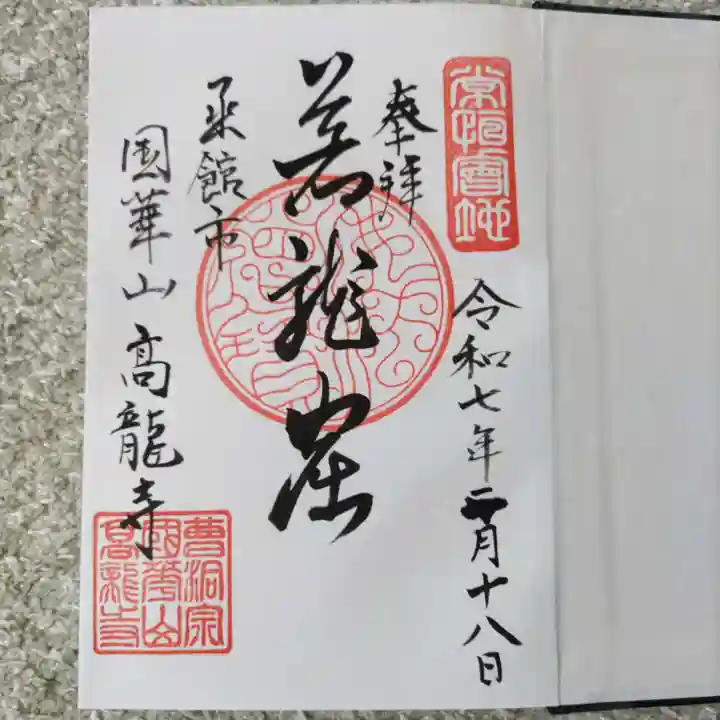 常恒會地
奉拝
令和七年二月十八日
龍
函館市
國華山高龍寺
曹洞宗
國華山
高龍寺